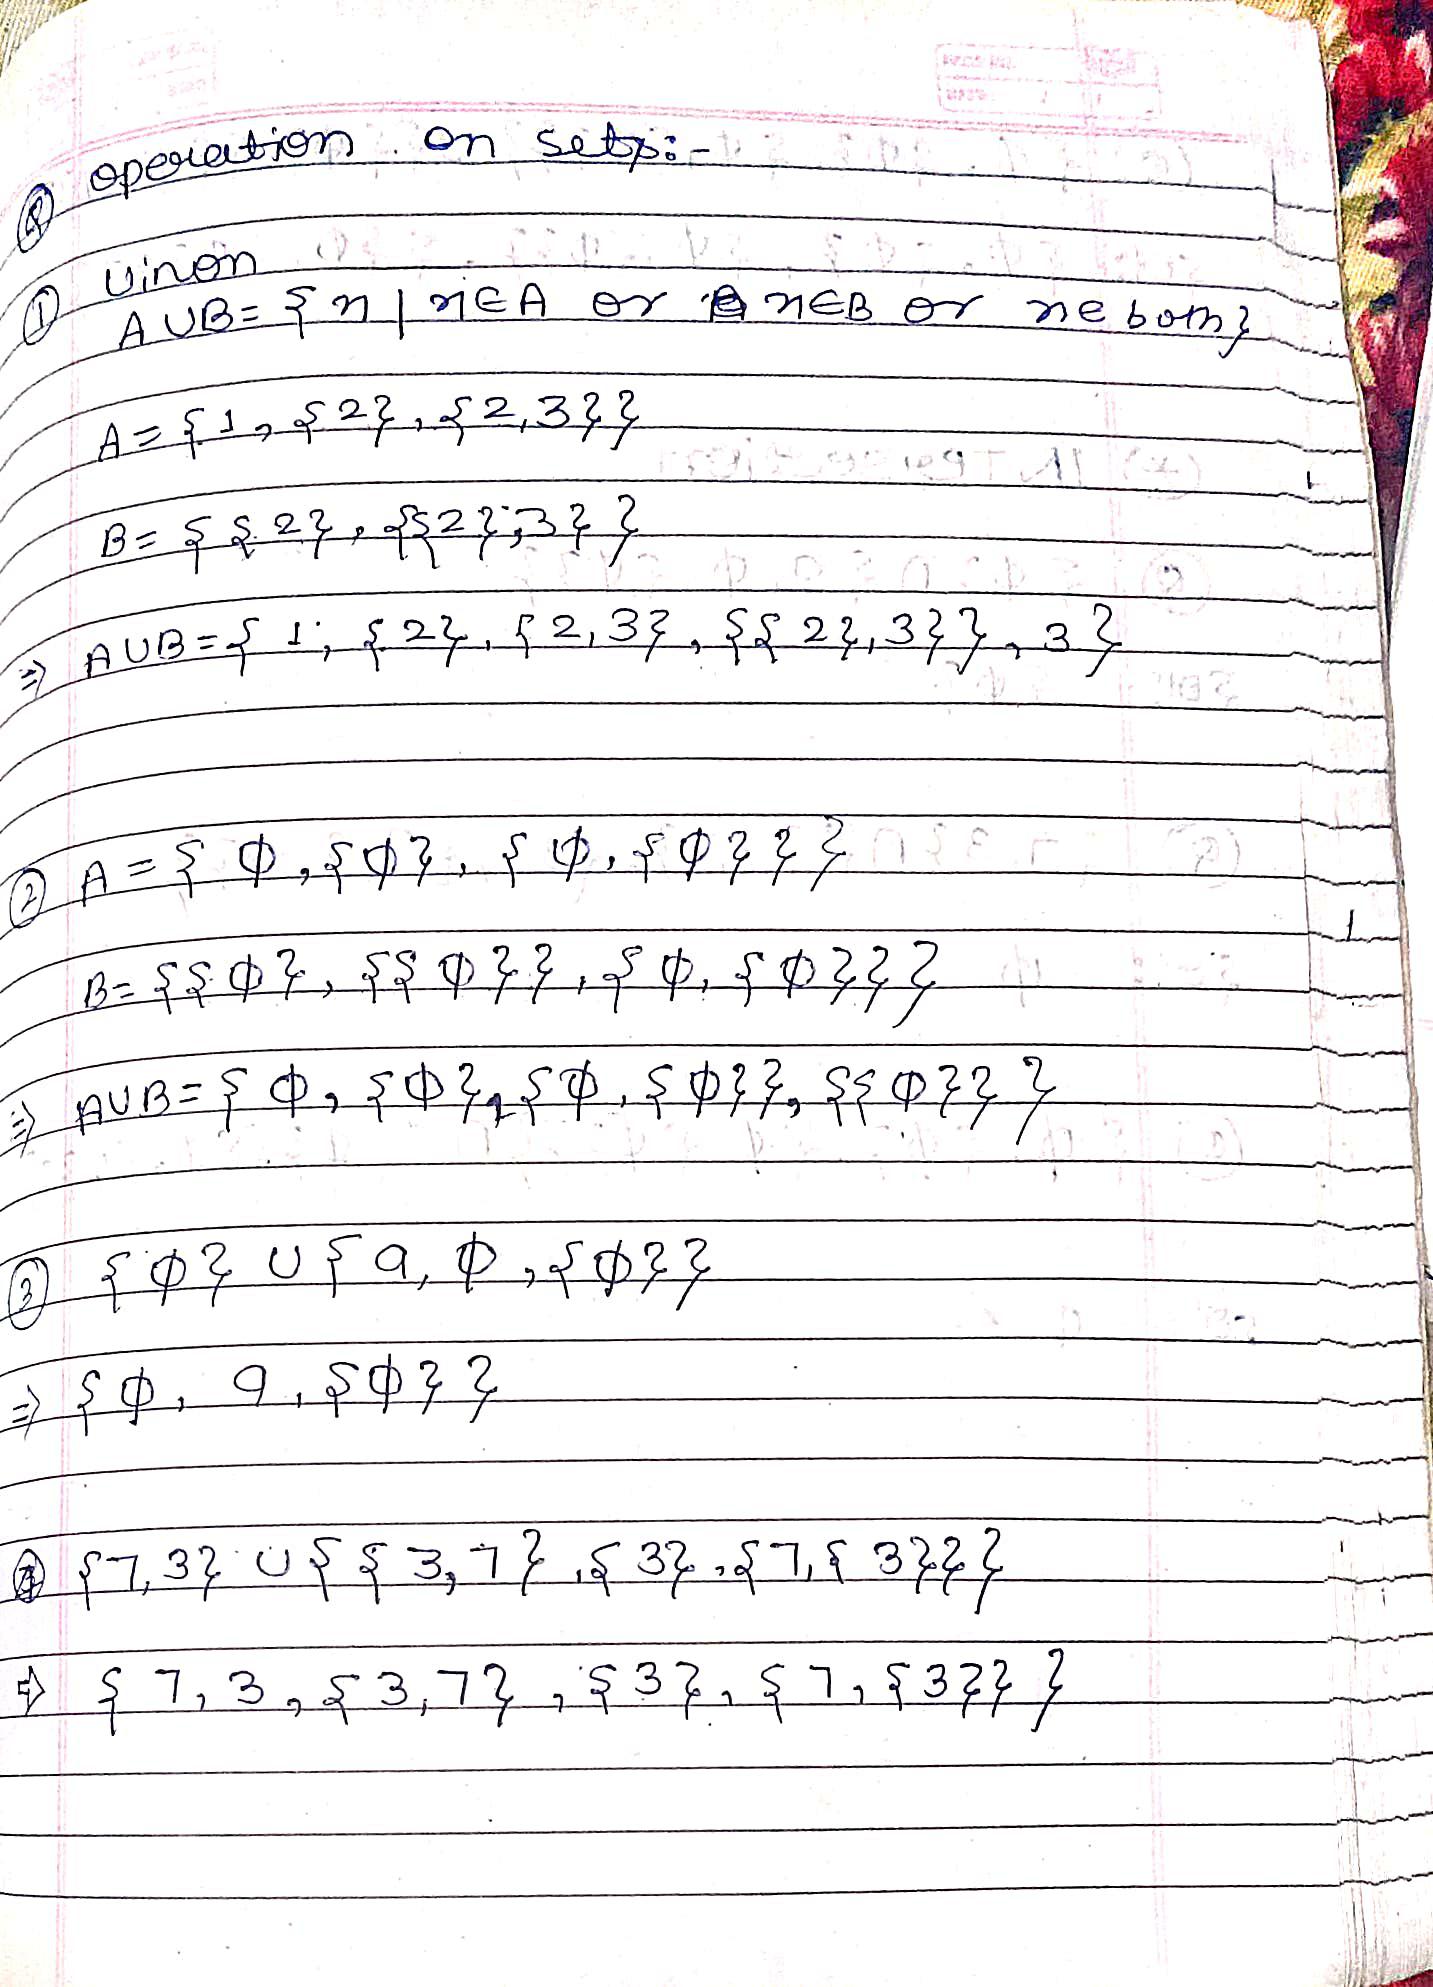 ⑧ operation on sets:-
① Uinon
A ∪ B = { n | n ∈ A or n ∈ B or n ∈ both }
A = { 1, {2}, {2,3}}
B = { {2}, {{2},3} }
⇒ A ∪ B = { 1, {2}, {2,3}, {{2},3}}, 3 }
② A = { Φ, {Φ}, { Φ, {Φ}}}
B = {{Φ}, {{Φ}}, {Φ, {Φ}}}
⇒ A∪B = { Φ, {Φ}, {Φ, {Φ}}, {{Φ}} }
③ {Φ} ∪ {a, Φ, {Φ}}
⇒ {Φ, a, {Φ}}
④ {7,3} ∪ { {3,7}, {3}, {7,{3}}}
⇒ { 7, 3, {3,7}, {3}, {7, {3}} }